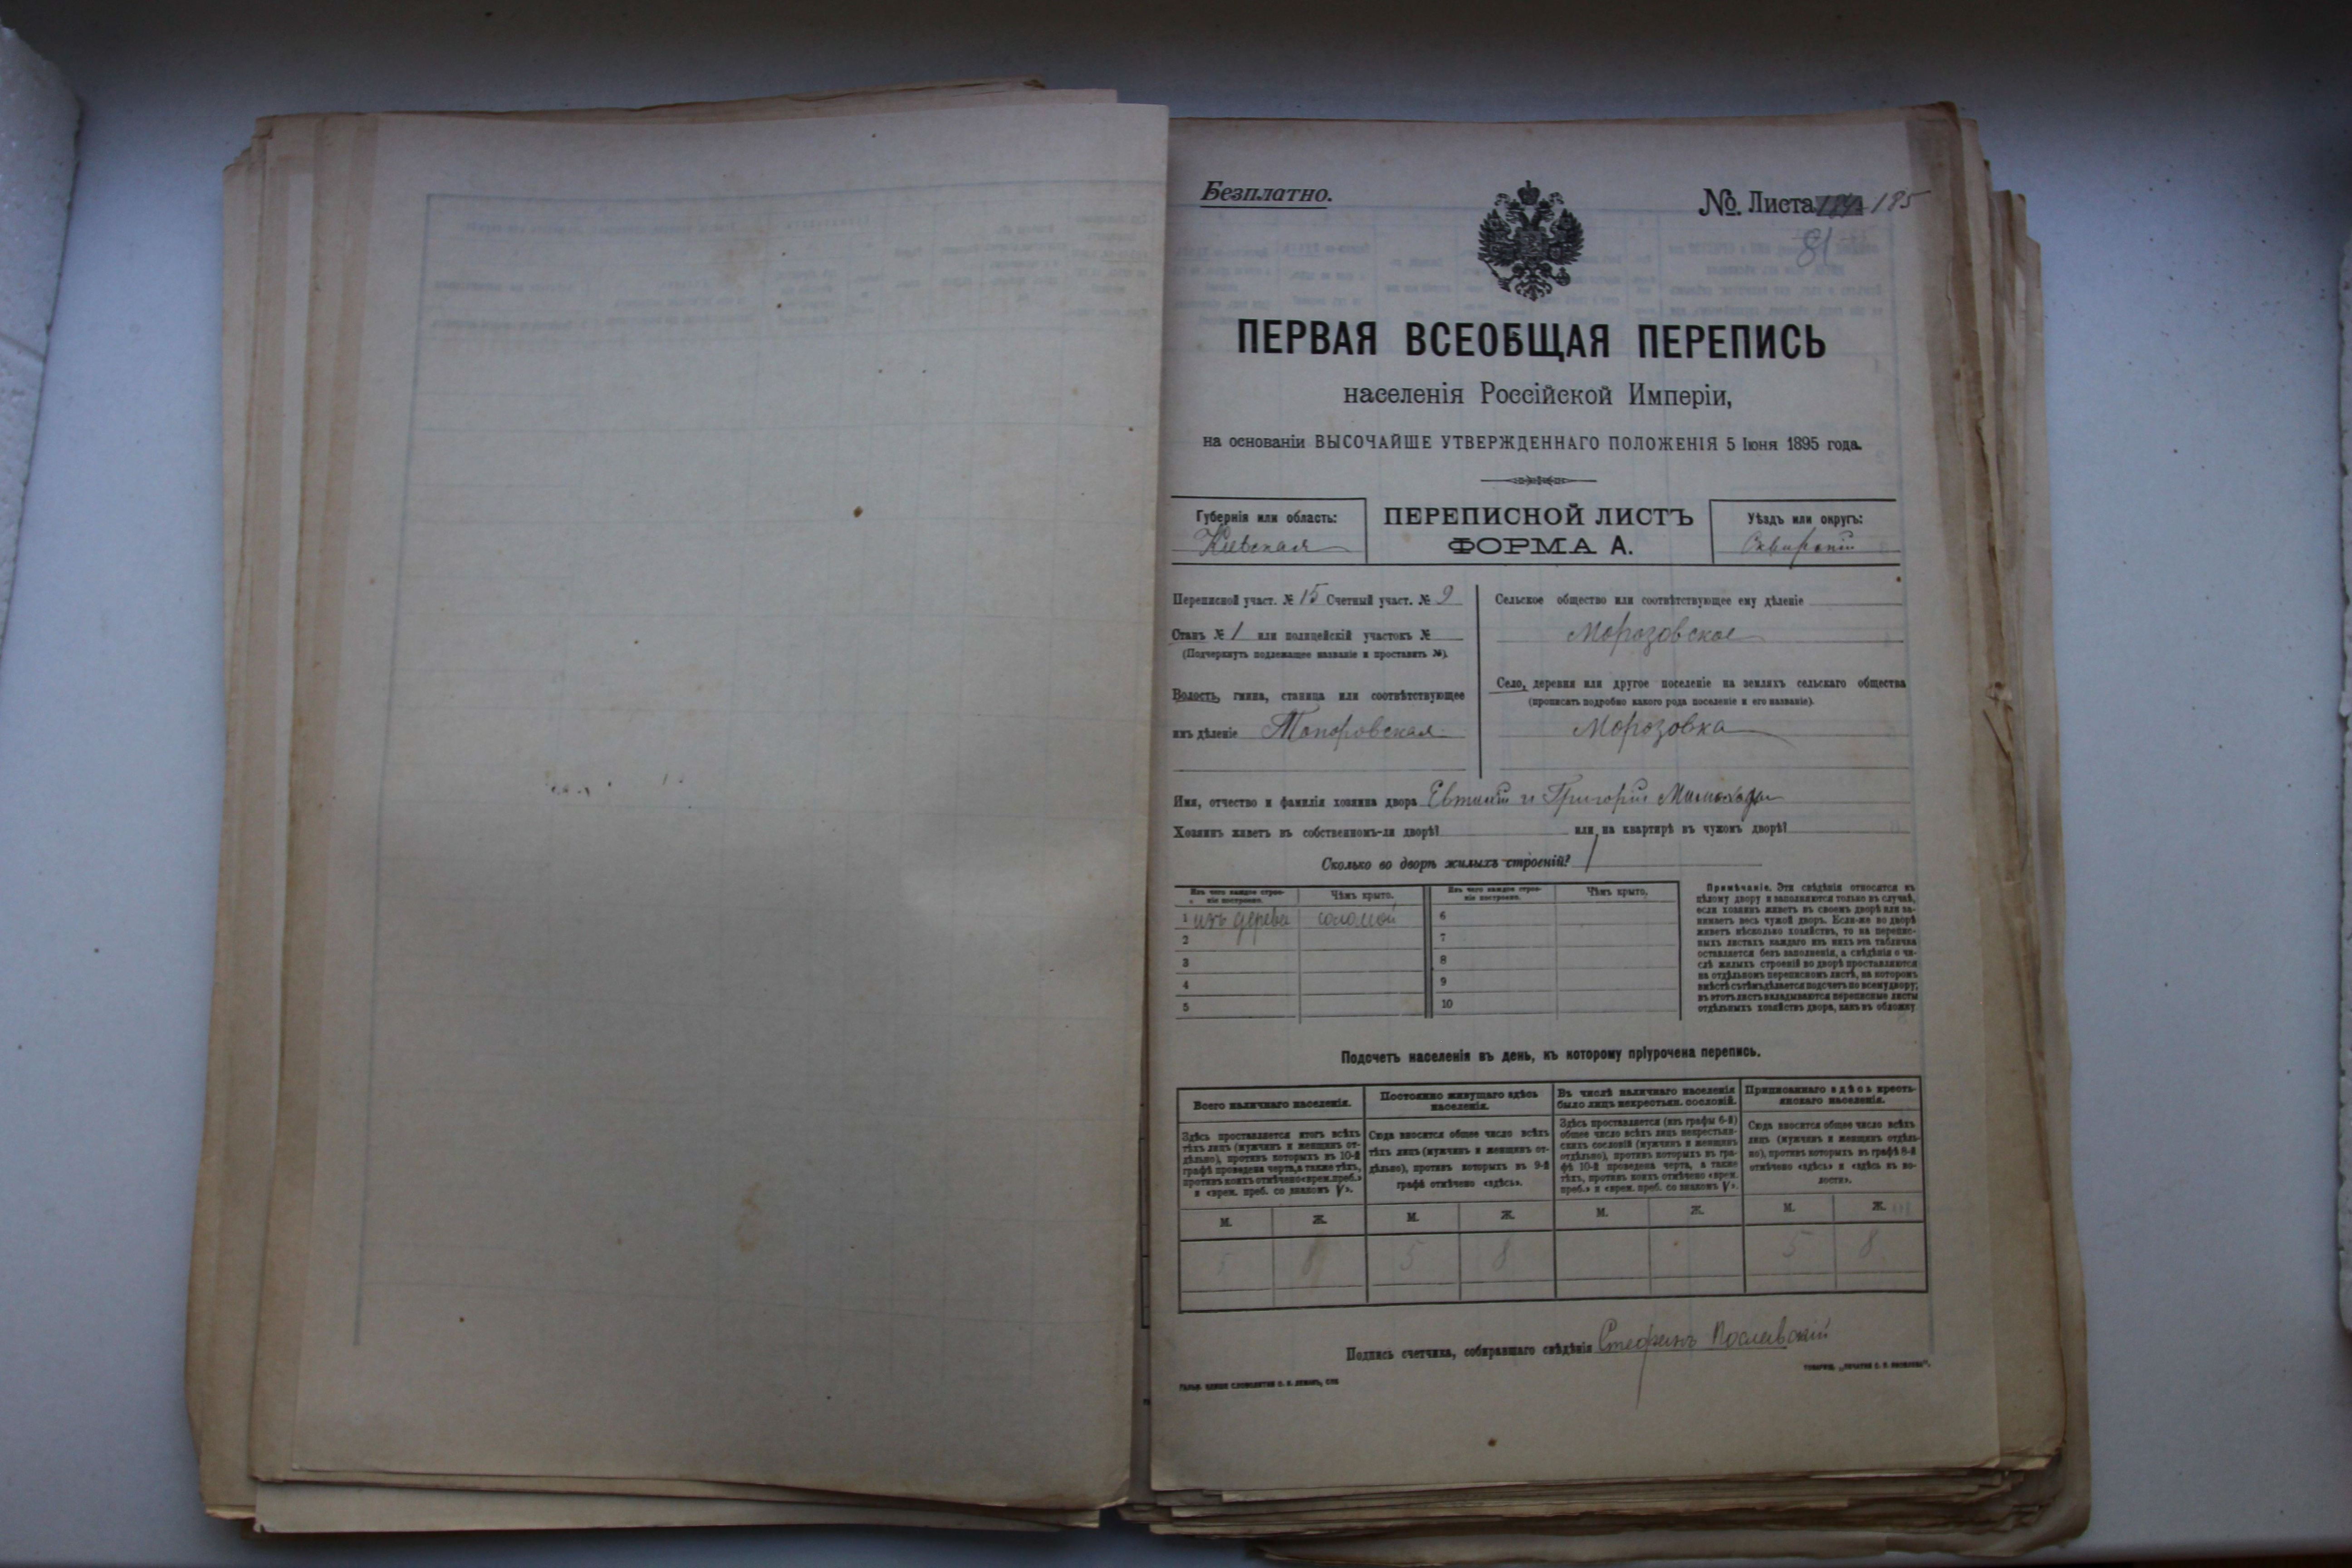 Безплатно.
№. Листа 185
81
ПЕРВАЯ ВСЕОБЩАЯ ПЕРЕПИСЬ
населенія Россійской Имперіи,
на основаніи ВЫСОЧАЙШЕ УТВЕРЖДЕННАГО ПОЛОЖЕНІЯ 5 Іюня 1895 года.
Губернія или область:
Кіевская
ПЕРЕПИСНОЙ ЛИСТЪ
ФОРМА А.
Уѣздъ или округъ:
Сквирскій
Переписной участ. № 15 Счетный участ. № 9
Станъ № 1 или полицейскій участокъ №
(Подчеркнуть подлежащее названіе и проставить №).
Волость, гмина, станица или соотвѣтствующее
имъ дѣленіе Топоровская
Сельское общество или соотвѣтствующее ему дѣленіе
Морозовское
Село, деревня или другое поселеніе на земляхъ сельскаго общества
(прописать подробно какого рода поселеніе и его названіе).
Морозовка
Имя, отчество и фамилія хозяина двора Евтихій и Григорій
Хозяинъ живетъ въ собственномъ-ли дворѣ? или на квартирѣ въ чужомъ дворѣ?
Сколько во дворѣ жилыхъ строеній? 1
Изъ чего каждое строеніе построено.
Чѣмъ крыто.
Изъ чего каждое строеніе построено.
Чѣмъ крыто.
1 изъ дерева соломой 6
2 7
3 8
4 9
5 10
Примѣчаніе. Эти свѣдѣнія относятся къ
цѣлому двору и заполняются только въ случаѣ,
если хозяинъ живетъ въ своемъ дворѣ или за-
нимаетъ весь чужой дворъ. Если-же во дворѣ
живетъ нѣсколько хозяйствъ, то на перепис-
ныхъ листахъ каждаго изъ нихъ эта табличка
оставляется безъ заполненія, а свѣдѣнія о чи-
слѣ жилыхъ строеній во дворѣ проставляются
на отдѣльномъ переписномъ листѣ, на которомъ
вмѣстѣ съ тѣмъ дѣлается подсчетъ по всему двору;
въ этотъ листъ вкладываются переписные листы
отдѣльныхъ хозяйствъ двора, какъ въ обложку
Подсчетъ населенія въ день, къ которому пріурочена перепись.
Всего наличнаго населенія.
Здѣсь проставляется итогъ всѣхъ
тѣхъ лицъ (мужчинъ и женщинъ от-
дѣльно), противъ которыхъ въ 10-й
графѣ проведена черта, а также тѣхъ,
противъ коихъ отмѣчено «врем. преб.»
и «врем. преб. со знакомъ V».
Постоянно живущаго здѣсь
населенія.
Сюда вносится общее число всѣхъ
тѣхъ лицъ (мужчинъ и женщинъ от-
дѣльно), противъ которыхъ въ 9-й
графѣ отмѣчено «здѣсь».
Въ числѣ наличнаго населенія
было лицъ некрестьян. сословій.
Здѣсь проставляется (изъ графы 6-й)
общее число всѣхъ лицъ некрестьян-
скихъ сословій (мужчинъ и женщинъ
отдѣльно), противъ которыхъ въ гра-
фѣ 10-й проведена черта, а также
тѣхъ, противъ коихъ отмѣчено «врем.
преб.» и «врем. преб. со знакомъ V».
Приписаннаго здѣсь кресть-
янскаго населенія.
Сюда вносится общее число всѣхъ
лицъ (мужчинъ и женщинъ отдѣль-
но), противъ которыхъ въ графѣ 8-й
отмѣчено «здѣсь» и «здѣсь въ во-
лости».
М. Ж. М. Ж. М. Ж. М. Ж.
8 5 8 5 8
Подпись счетчика, собиравшаго свѣдѣнія Стефанъ